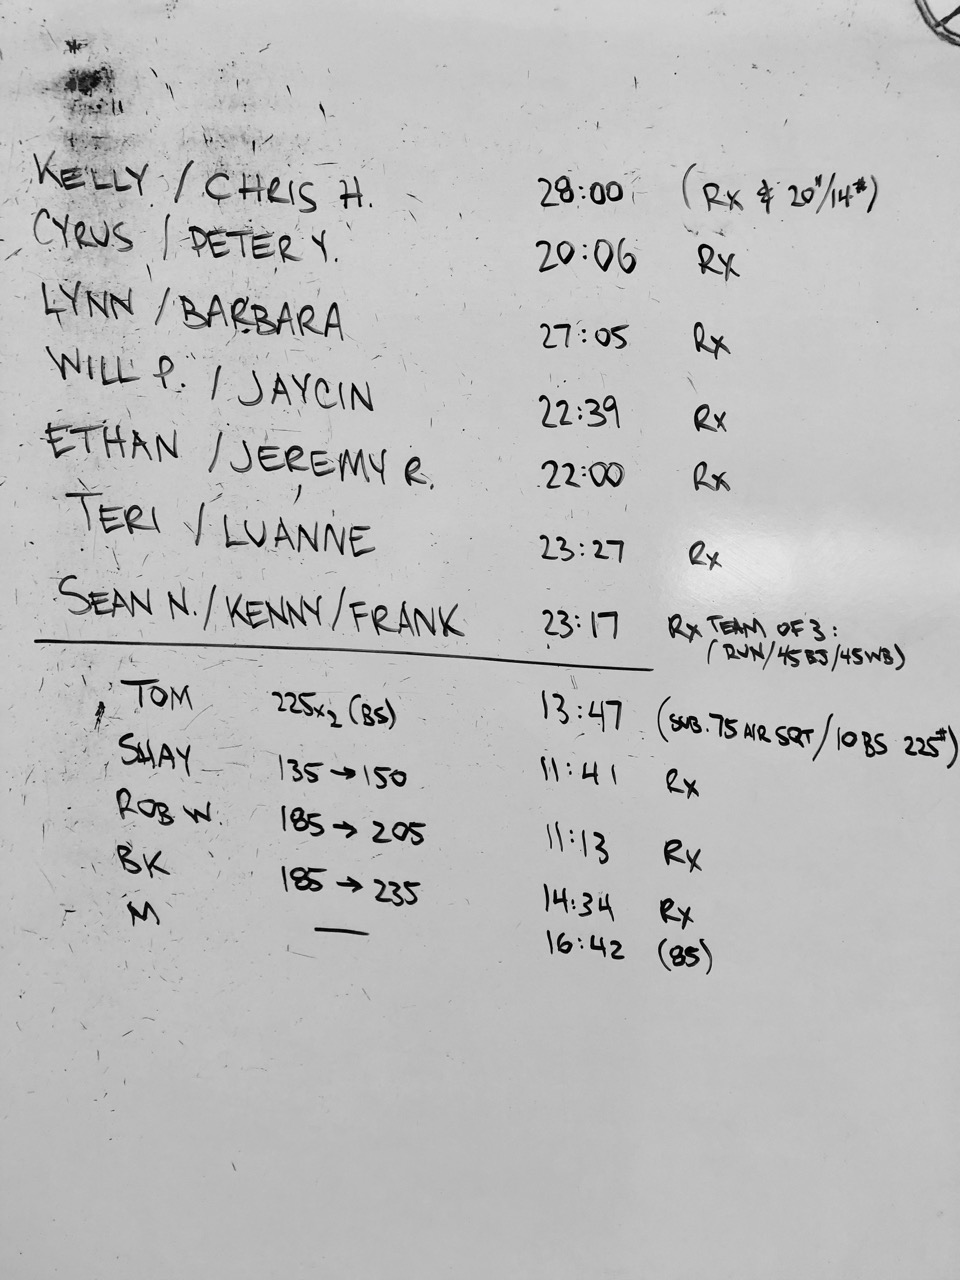 KELLY / CHRIS H. 28:00 (Rx & 20#/14#)
CYRUS / PETER Y. 20:06 Rx
LYNN / BARBARA 27:05 Rx
WILL P. / JAYCIN 22:39 Rx
ETHAN / JEREMY R. 22:00 Rx
TERI / LUANNE 23:27 Rx
SEAN N. / KENNY / FRANK 23:17 Rx TEAM OF 3:
(RUN/45BJ/45WB)
TOM 225x2 (BS) 13:47 (SUB. 75 AIR SQT/10BS 225#)
SHAY 135→150 11:41 Rx
ROB W. 185→205 11:13 Rx
BK 185→235 14:34 Rx
M — 16:42 (85)